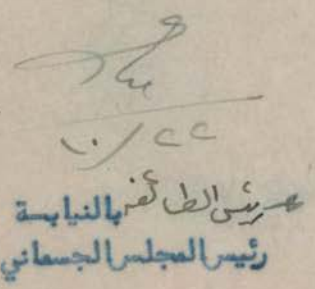 ١٠/٢٢
عن رئيس الطائفة بالنيابة
رئيس المجلس الجسماني